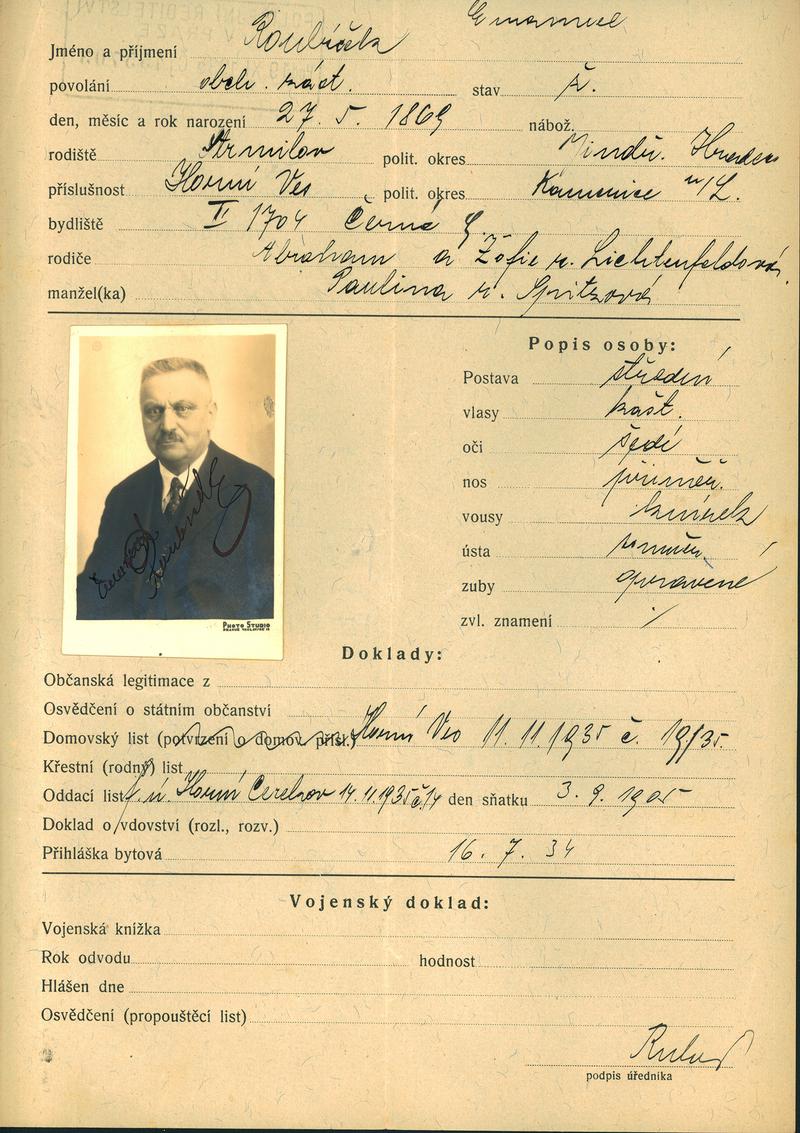 Emanuel
Jméno a příjmení Roubíček
povolání obch. zást. stav ž.
den, měsíc a rok narození 27. 5. 1869 nábož.
rodiště Strmilov polit. okres Jindř. Hradec
příslušnost Horní Ves polit. okres Kamenice n/L.
bydliště II 1704 Černá
rodiče Abraham a Žofie r. Lichtenfeldová
manžel(ka) Paulina r. Spitzová
Popis osoby:
Postava střední
vlasy kašt.
oči šedé
nos přiměř.
vousy knírek
ústa
zuby opravené
zvl. znamení /
Emanuel
Roubíček
PHOTO STUDIO
Doklady:
Občanská legitimace z
Osvědčení o státním občanství
Domovský list (potvrzení o domov. přísl.) Horní Ves 11. 11. 1935 č. 19/35.
Křestní (rodný) list
Oddací list ž. ú. Horní Cerekev 14. 11. 1935 č. 14 den sňatku 3. 9. 1905
Doklad o vdovství (rozl., rozv.)
Přihláška bytová 16. 7. 34
Vojenský doklad:
Vojenská knížka
Rok odvodu hodnost
Hlášen dne
Osvědčení (propouštěcí list)
podpis úředníka